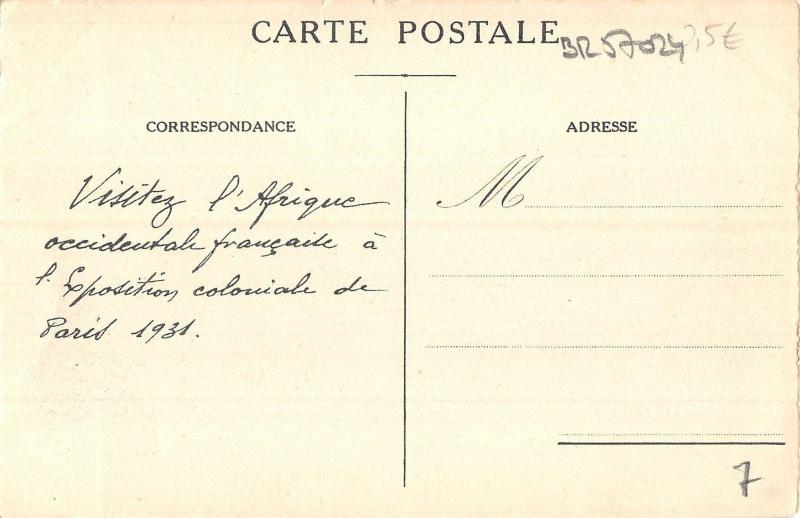 CARTE POSTALE
BR57024 0,5€
CORRESPONDANCE
ADRESSE
Visitez l'Afrique
occidentale française à
l'Exposition coloniale de
Paris 1931.
M
7